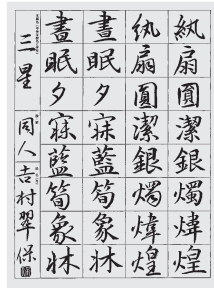 紈扇圓潔銀燭煒煌
紈扇圓潔銀燭煒煌
晝眠夕寐藍筍象牀
晝眠夕寐藍筍象牀
三星 同人 吉村翠保